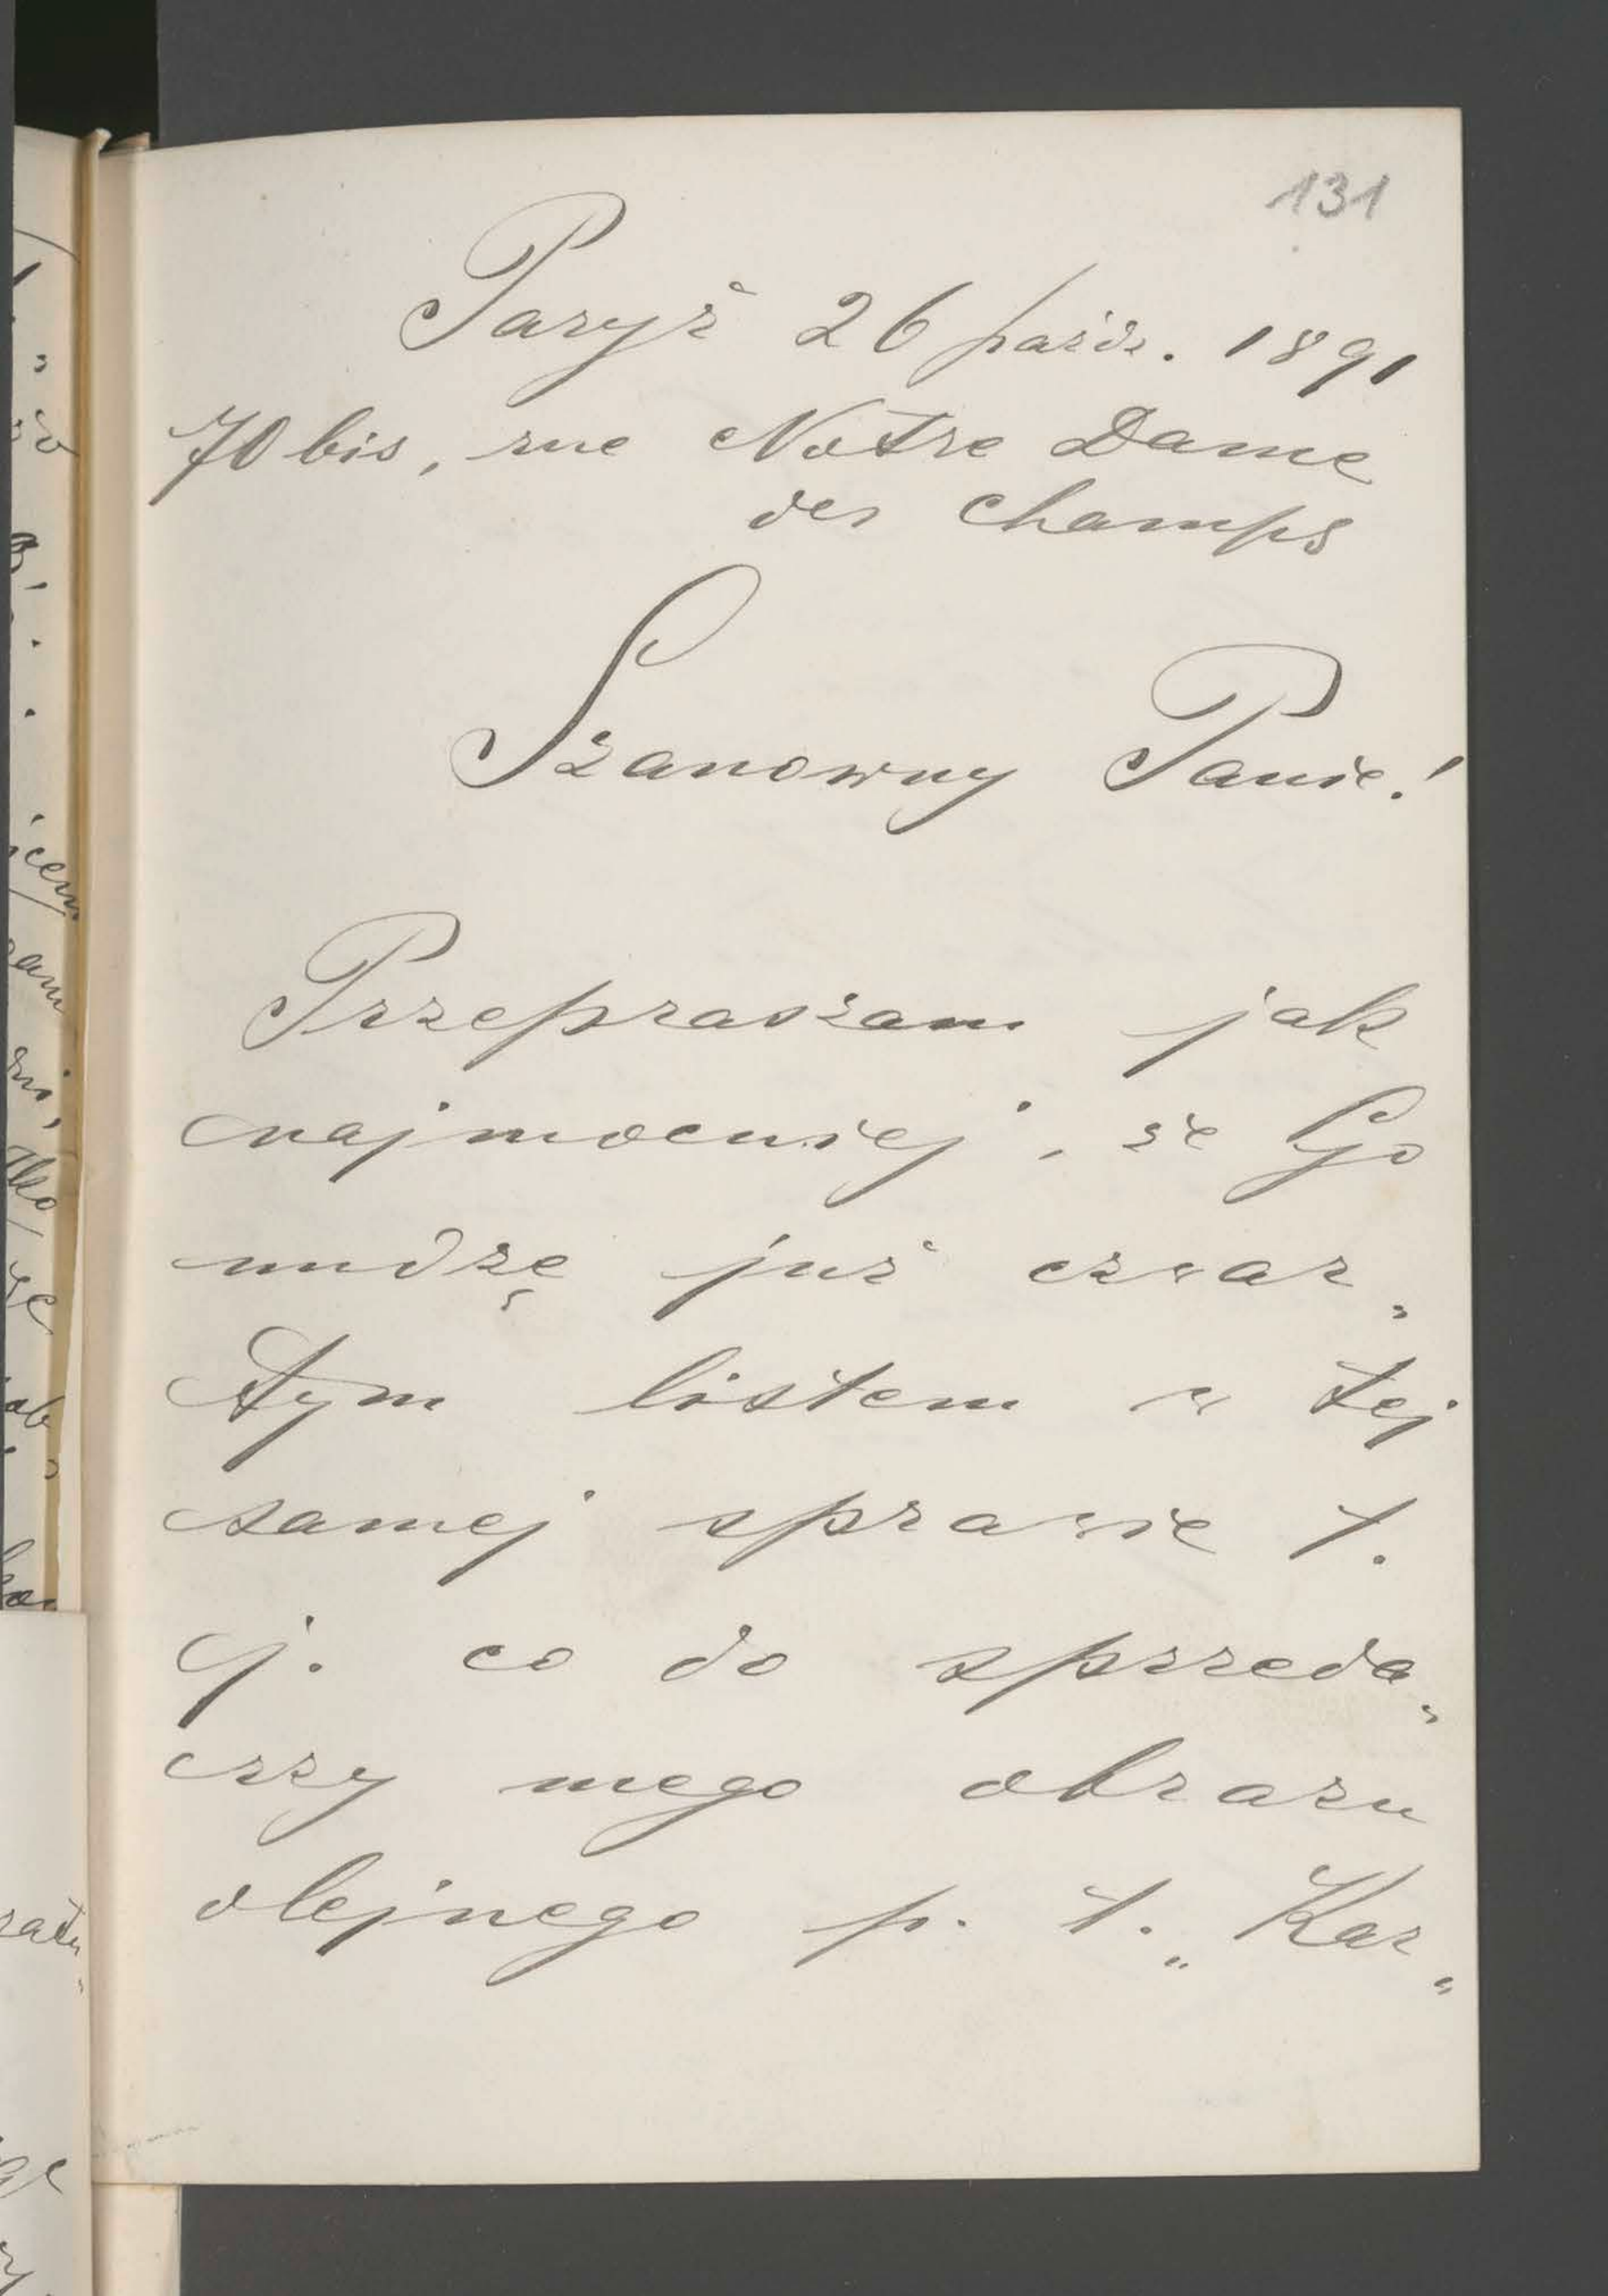 131
Paryż 26 paźdz. 1891
70 bis, rue Notre Dame
des Champs
Szanowny Panie!
Przepraszam jak
najmocniej, że Go
nudzę już czwar„
tym listem w tej
samej sprawie t.
j. co do sprzeda„
czzy mego obrazu
olejnego p. t. „Kar„